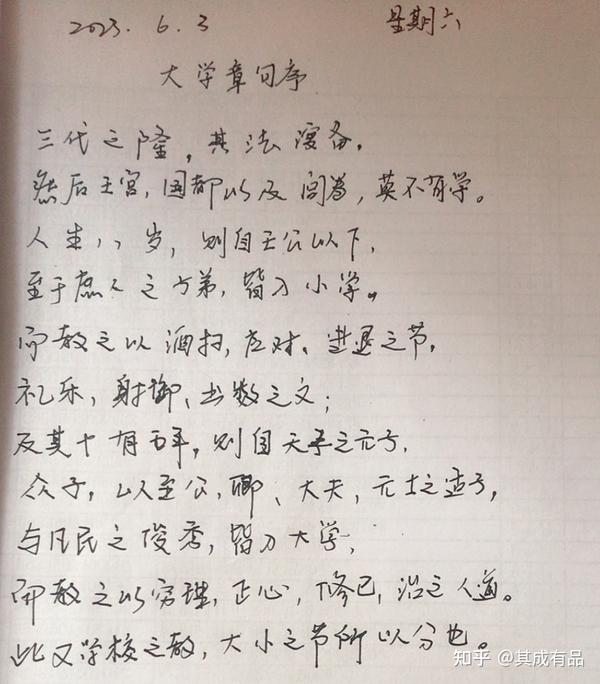 2023. 6. 3 星期六
大学章句序
三代之隆，其法寖备，
然后王宫，国都以及闾巷，莫不有学。
人生八岁，则自王公以下，
至于庶人之子弟，皆入小学。
而教之以洒扫，应对、进退之节，
礼乐，射御、书数之文；
及其十有五年，则自天子之元子，
众子，以至公，卿、大夫，元士之适子，
与凡民之俊秀，皆入大学，
而教之以穷理，正心，修己，治之人道。
此又学校之教，大小之节所以分也。
知乎 @其成有品